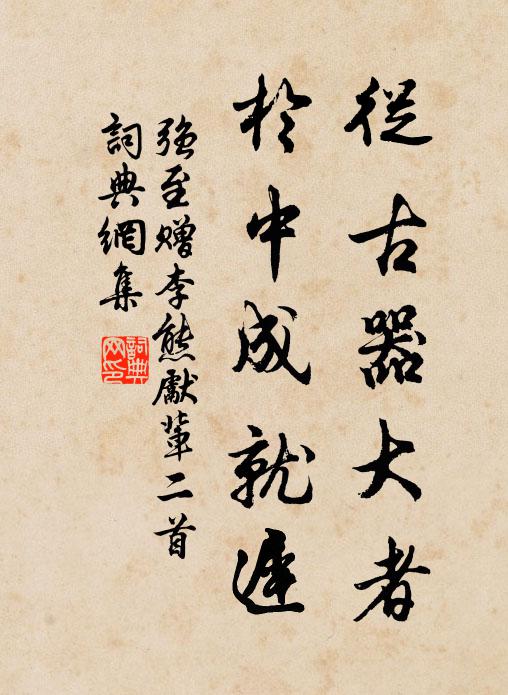 從古器大者
於中成就遲
強至贈李熊獻輩二首
詞典網集
詞典
网印